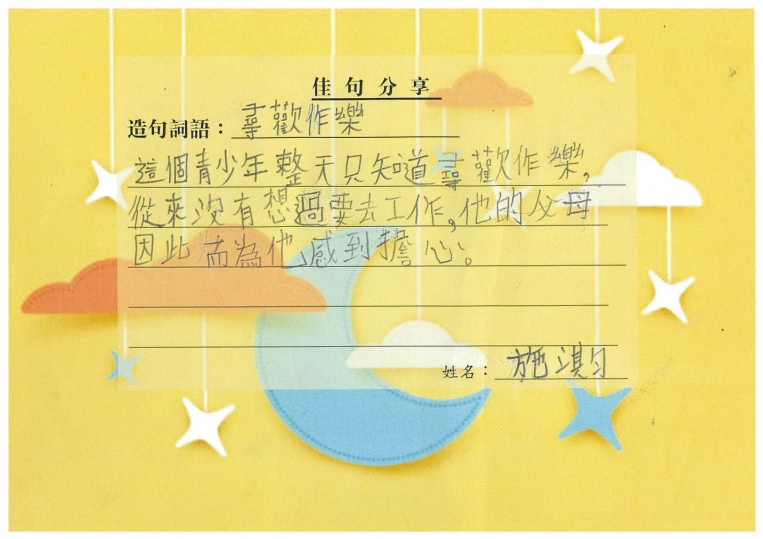 佳句分享
造句詞語：尋歡作樂
這個青少年整天只知道尋歡作樂，
從來沒有想過要去工作，他的父母
因此而為他感到擔心。
姓名：施淇勻